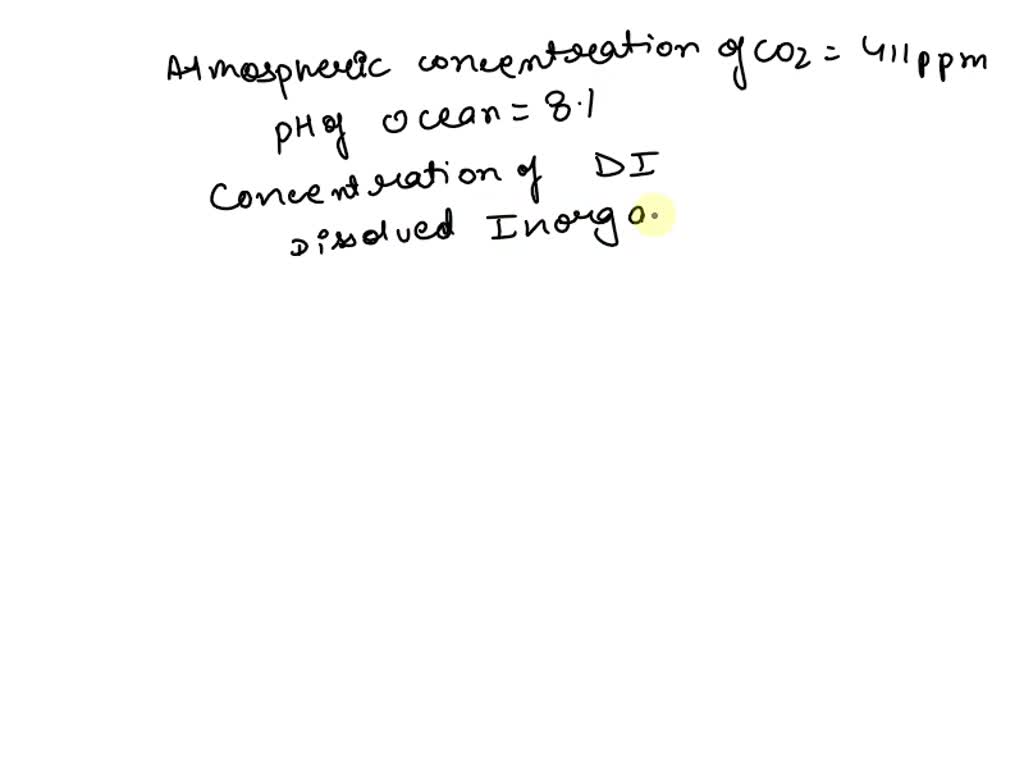 Atmospheric concentration of CO2 = 411ppm
pH of Ocean = 8.1
Concentration of DI
Dissolved Inorga